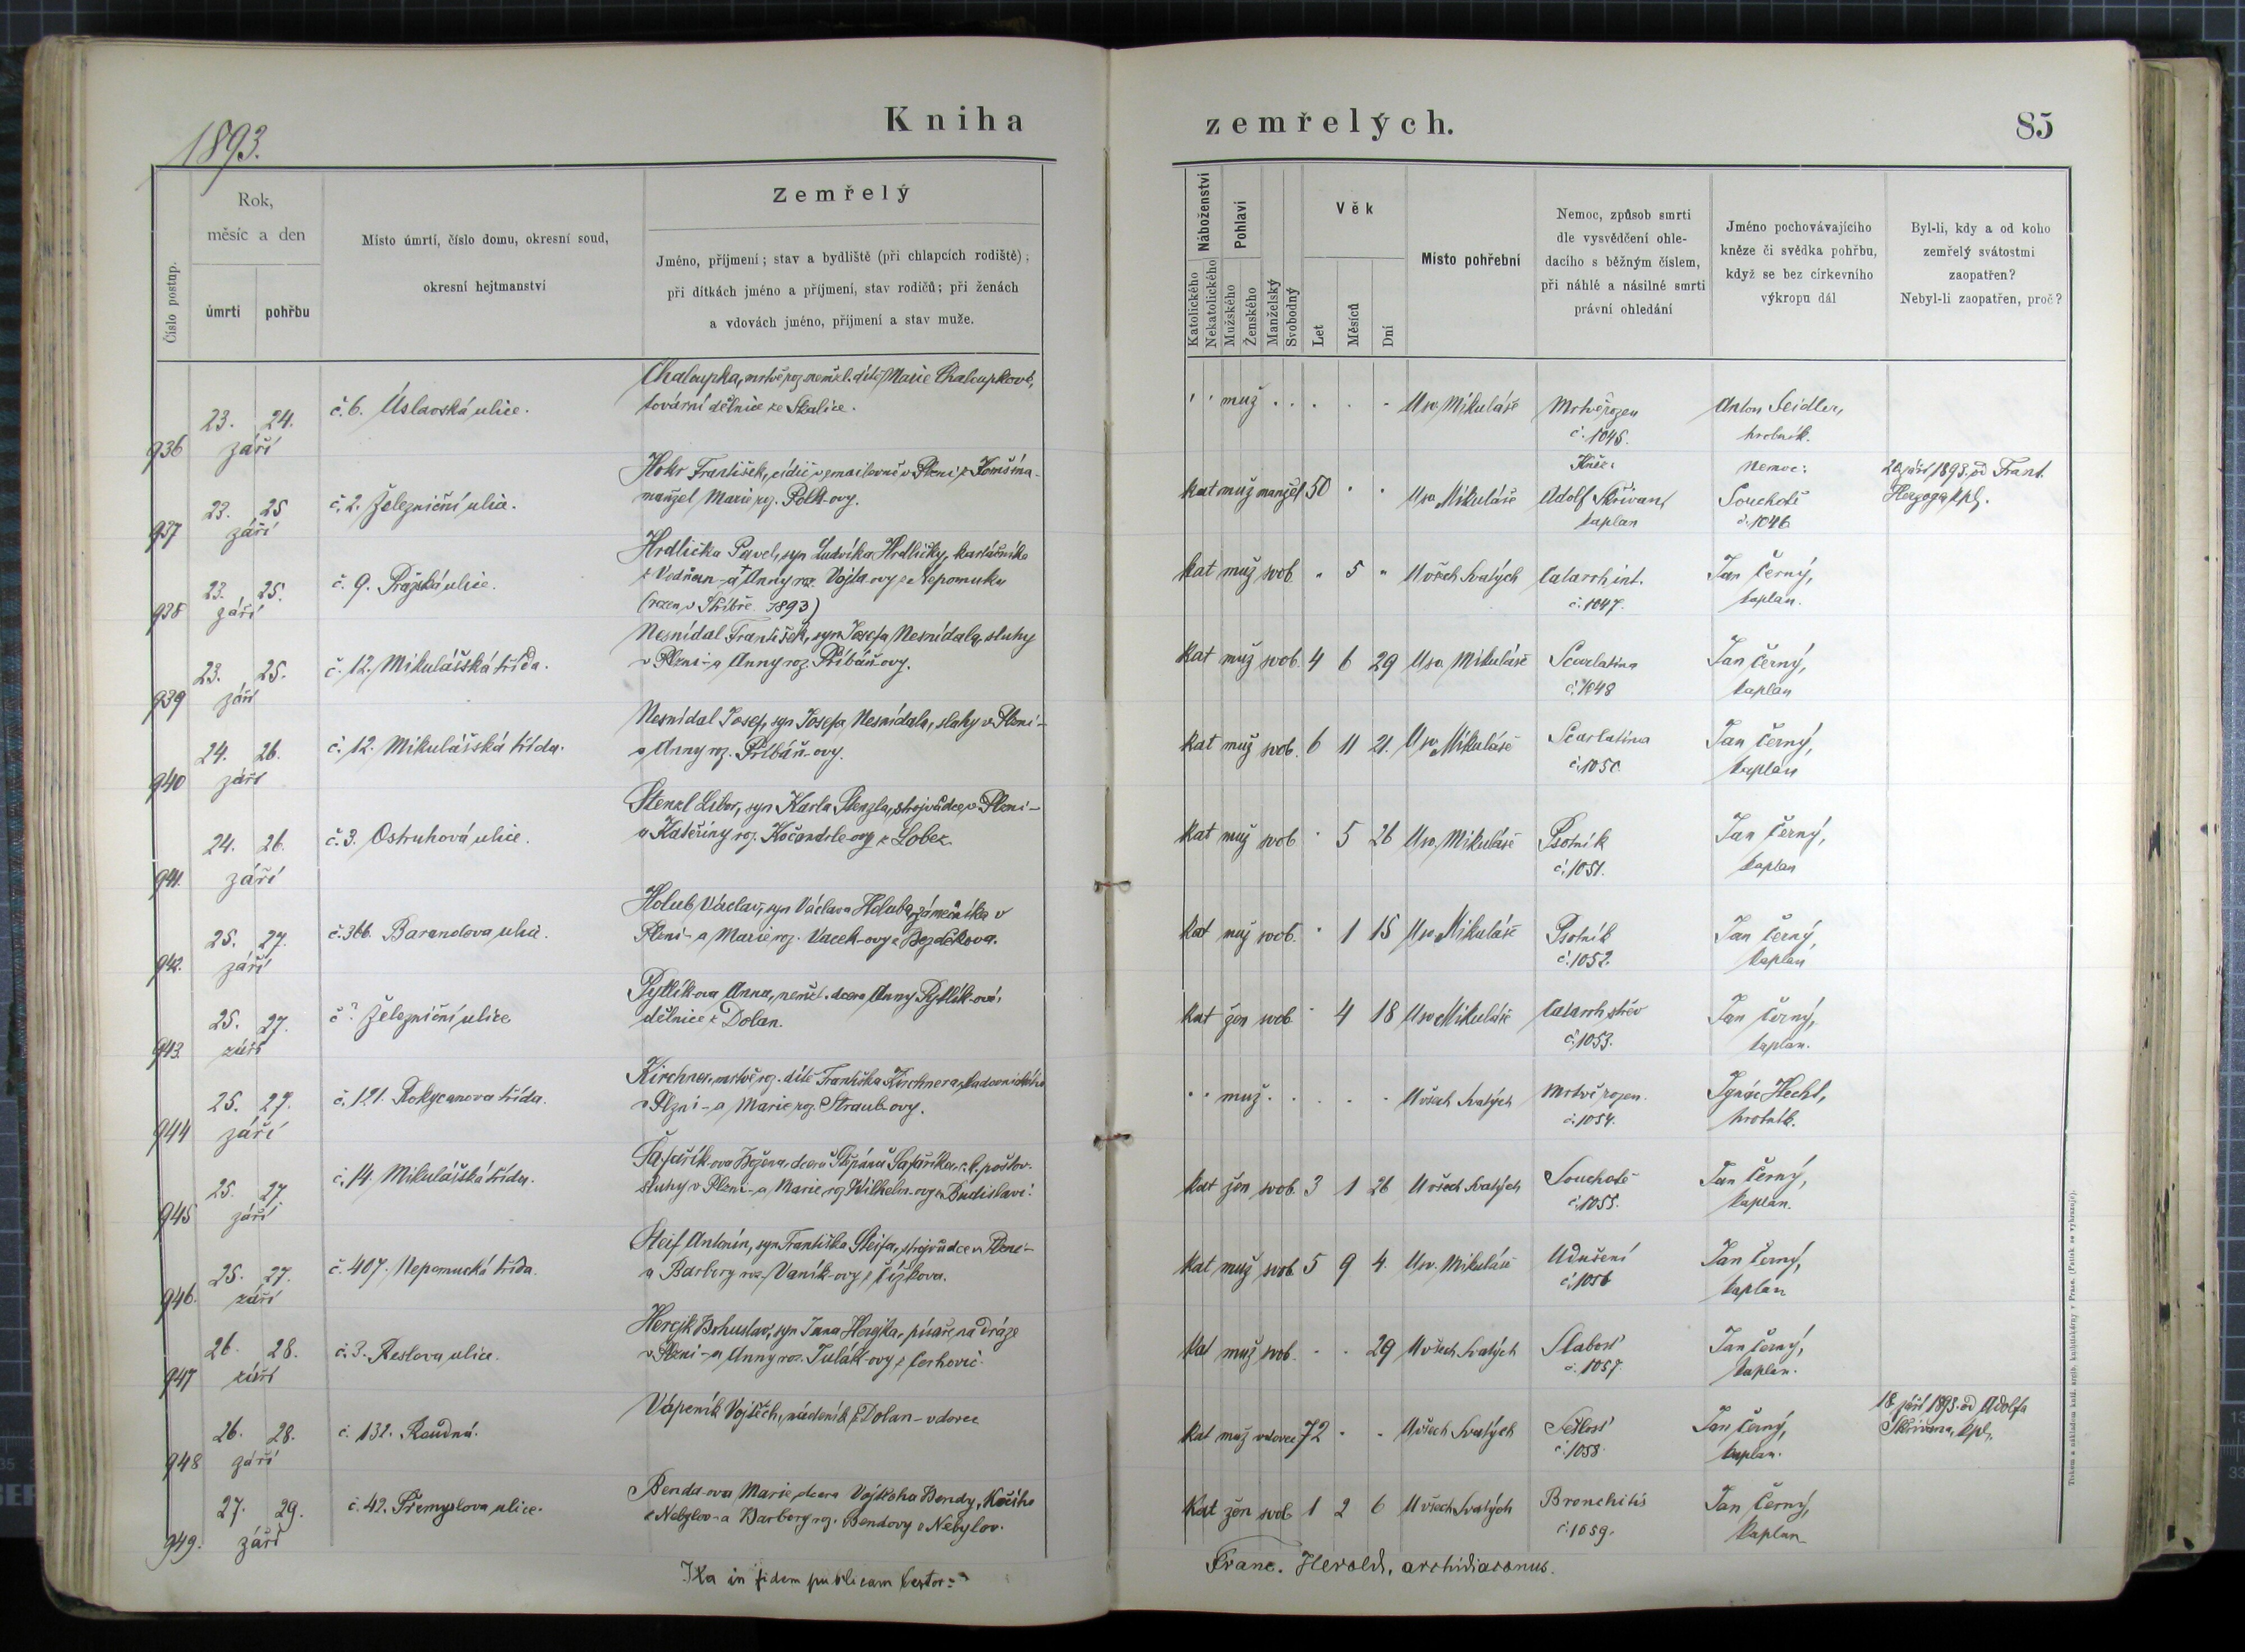 1893.
Kniha
zemřelých.
85
Číslo postup.
Rok,
měsíc a den
úmrtí
pohřbu
Místo úmrtí, číslo domu, okresní soud,
okresní hejtmanství
Zemřelý
Jméno, příjmení; stav a bydliště (při chlapcích rodiště);
při dítkách jméno a příjmení, stav rodičů; při ženách
a vdovách jméno, příjmení a stav muže.
Náboženství
Katolického
Nekatolického
Pohlaví
Mužského
Ženského
Manželský
Svobodný
Věk
Let
Měsíců
Dní
Místo pohřební
Nemoc, způsob smrti
dle vysvědčení ohle-
dacího s běžným číslem,
při náhlé a násilné smrti
právní ohledání
Jméno pochovávajícího
kněze či svědka pohřbu,
když se bez církevního
výkropu dál
Byl-li, kdy a od koho
zemřelý svátostmi
zaopatřen?
Nebyl-li zaopatřen, proč?
936 23. 24. září
č. 6. Úslavská ulice.
Chaloupka, mrtvě roz. nemžel. dítě Marie Chaloupkové,
tovární dělnice ze Skalice.
muž U sv. Mikuláše Mrtvě rozen Anton Seidler,
č. 1045. hrobník.
937 23. 25 září
č. 2. Železniční ulice.
Hokr František, cídič v emailovně v Plzni z
manžel Marie roz. Polk-ovy.
Kněz: Nemoc: 20 září 1893, od Frant.
Kat muž manžel 50 U sv. Mikuláše Adolf Skřivan, Souchotě Herzoga, kpl.
kaplan č. 1046
938 23. 25. září
č. 9. Pražská ulice.
Hrdlička Pavel, syn Ludvíka Hrdličky, kartáčníka
z Vodňan - a † Anny roz. Vojta-ovy z Nepomuku
(rozen v Stříbře 1893)
Kat muž svob. 5 U všech Svatých Catarrh int. Jan Černý,
č. 1047. kaplan.
939 23. 25. září
č. 12. Mikulášská třída.
Nesnídal František, syn Josefa Nesnídala, sluhy
v Plzni - a Anny roz. Přibáň-ovy.
Kat muž svob. 4 6 29 U sv. Mikuláše Scarlatina Jan Černý,
č. 1048 kaplan
940 24. 26. září
č. 12. Mikulášská třída.
Nesnídal Josef, syn Josefa Nesnídala, sluhy v Plzni -
a Anny roz. Přibáň-ovy.
Kat muž svob. 6 11 21. U sv. Mikuláše Scarlatina Jan Černý,
č. 1050 kaplan
941. 24. 26. září
č. 3. Ostruhová ulice.
Stenzl Libor, syn Karla Stenzla, strojvůdce v Plzni -
a Kateřiny roz. Kočandrle-ovy z Lobez.
Kat muž svob. 5 26 U sv. Mikuláše Psotník Jan Černý,
č. 1051. kaplan
942. 25. 27. září
č. 366. Barandova ulice.
Holub Václav, syn Václava Holuba, zámečníka v
Plzni - a Marie roz. Vacek-ovy z Bezděkova.
Kat muž svob. 1 15 U sv. Mikuláše Psotník Jan Černý,
č. 1052. kaplan
943. 25. 27. září
č. ? Železniční ulice
Pytlík-ova Anna, nemžel. dcera Anny Pytlík-ové,
dělnice z Dolan.
Kat žen svob 4 18 U sv. Mikuláše Catarrh střev Jan Černý,
č. 1053. kaplan.
944 25. 27. září
č. 121. Rokycanova třída.
Kirchner, mrtvě roz. dítě Františka Kirchnera,
v Plzni - a Marie roz. Straub-ovy.
muž U všech Svatých Mrtvě rozen. Ignác Hecht,
č. 1054. hrobník.
945 25. 27. září
č. 14. Mikulášská třída.
Šafařík-ova Božena, dcera Štěpána Šafaříka, c. k. poštov.
sluhy v Plzni - a Marie roz. Wilhelm-ovy z Budislavi.
Kat žen svob. 3 1 26 U všech Svatých Souchotě Jan Černý,
č. 1055. kaplan.
946. 25. 27. září
č. 407. Nepomucká třída.
Steif Antonín, syn Františka Steifa, strojvůdce v Plzni -
a Barbory roz. Vaník-ovy z Čížkova.
Kat muž svob. 5 9 4. U sv. Mikuláše Udušení Jan Černý,
č. 1056 kaplan
947 26. 28. září
č. 3. Reslova ulice.
Herejk Bohuslav, syn Jana Herejka, písaře na dráze
v Plzni - a Anny roz. Tulák-ovy z
Kat muž svob. 29 U všech Svatých Slabost Jan Černý,
č. 1057. kaplan.
948 26. 28. září
č. 132. Roudná.
Vápeník Vojtěch, nádeník z Dolan - vdovec
18 září 1893. od Adolfa
Kat muž vdovec 72 U všech Svatých Sešlost Jan Černý, Skřivana, kpl.
č. 1058. kaplan.
949. 27. 29. září
č. 42. Přemyslova ulice.
Benda-ova Marie, dcera Vojtěcha Bendy, kočího
z Nebylov - a Barbory roz. Bendovy z Nebylov.
Kat žen svob 1 2 6 U všech Svatých Bronchitis Jan Černý,
č. 1059. kaplan
Ita in fidem publicam testor:
Franc. Herold, archidiaconus.